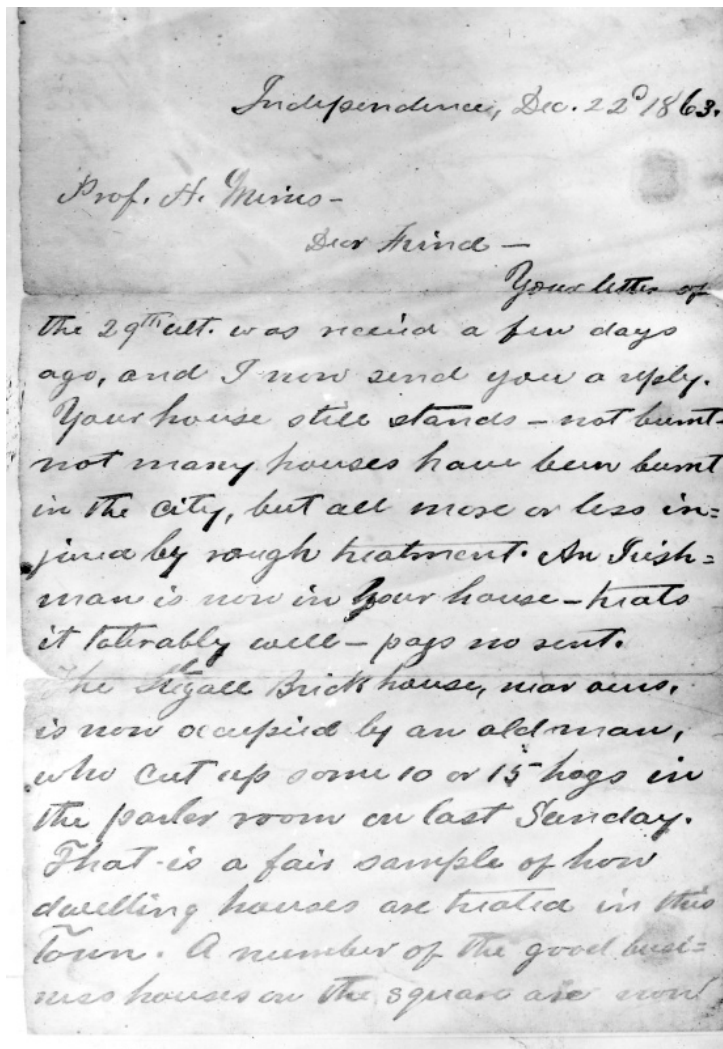 Independence, Dec. 22d 1863.
Prof. H. Mimis-
Dear Friend -
Your letter of
the 29th ult. was received a few days
ago, and I now send you a reply.
Your house still stands - not burnt-
not many houses have been burnt
in the city, but all more or less in=
jured by rough treatment. An Irish=
man is now in your house - treats
it tolerably well - pays no rent.
The Brick house, near ours,
is now occupied by an old man,
who cut up some 10 or 15 hogs in
the parler room on last Sunday.
That is a fair sample of how
dwelling houses are treated in this
Town. A number of the good busi=
ness houses on the square are now